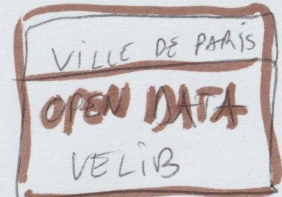 VILLE DE PARIS
OPEN DATA
VELIB